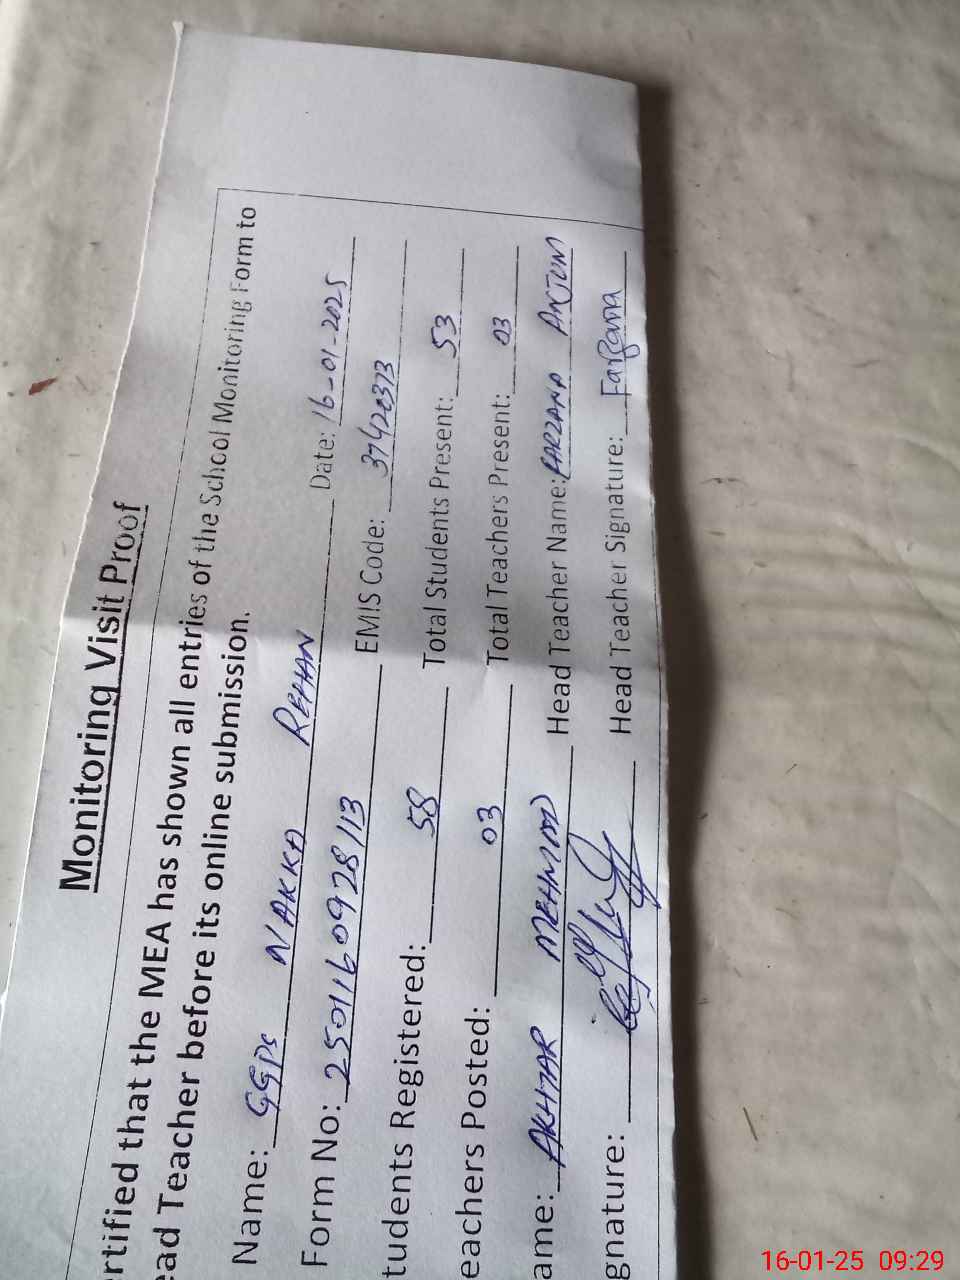 Monitoring Visit Proof
rtified that the MEA has shown all entries of the School Monitoring Form to
ead Teacher before its online submission.
Name: GGPS NAKKA REHAN Date: 16-01-2025
Form No: 2501160928113 EMIS Code: 37420373
tudents Registered: 58 Total Students Present: 53
eachers Posted: 03 Total Teachers Present: 03
ame: AKHTAR MEHMOOD Head Teacher Name: FARZANA ANJUM
gnature: Head Teacher Signature: Farzana
16-01-25 09:29